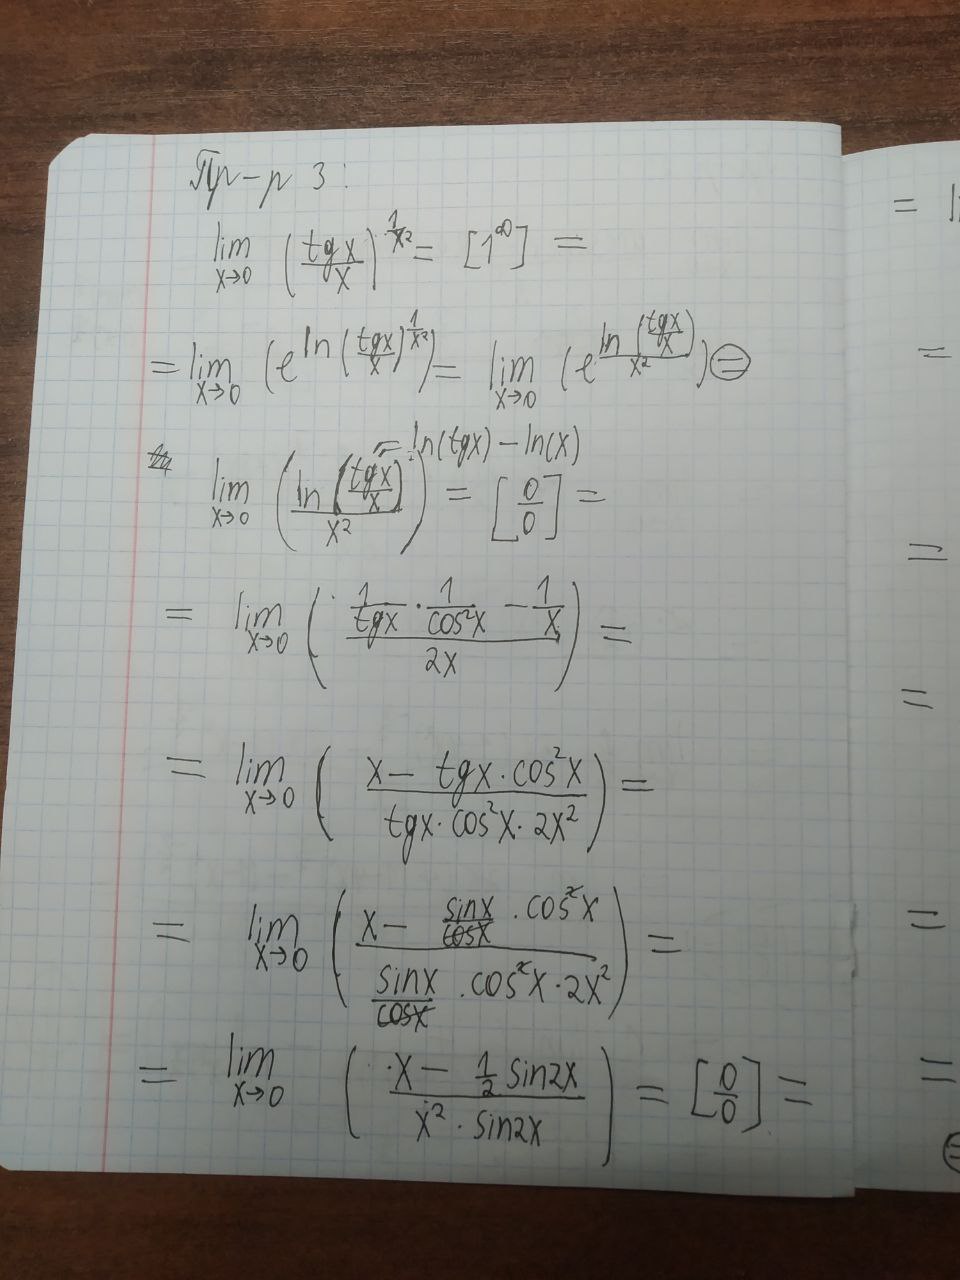 Пр-р 3:
lim x→0 (tgx/x)^(1/x²) = [1^∞] =
= lim x→0 (e^(ln(tgx/x)^(1/x²))) = lim x→0 (e^(ln(tgx/x)/x²)) ⊜
= ln(tgx) - ln(x)
lim x→0 (ln(tgx/x)/x²) = [0/0] =
= lim x→0 ((1/tgx · 1/cos²x - 1/x)/2x) =
= lim x→0 ((x - tgx · cos²x)/(tgx · cos²x · 2x²)) =
= lim x→0 ((x - sinx/cosx · cos²x)/(sinx/cosx · cos²x · 2x²)) =
= lim x→0 ((x - 1/2 sin2x)/(x² · sin2x)) = [0/0] =
= li
=
=
=
=
=